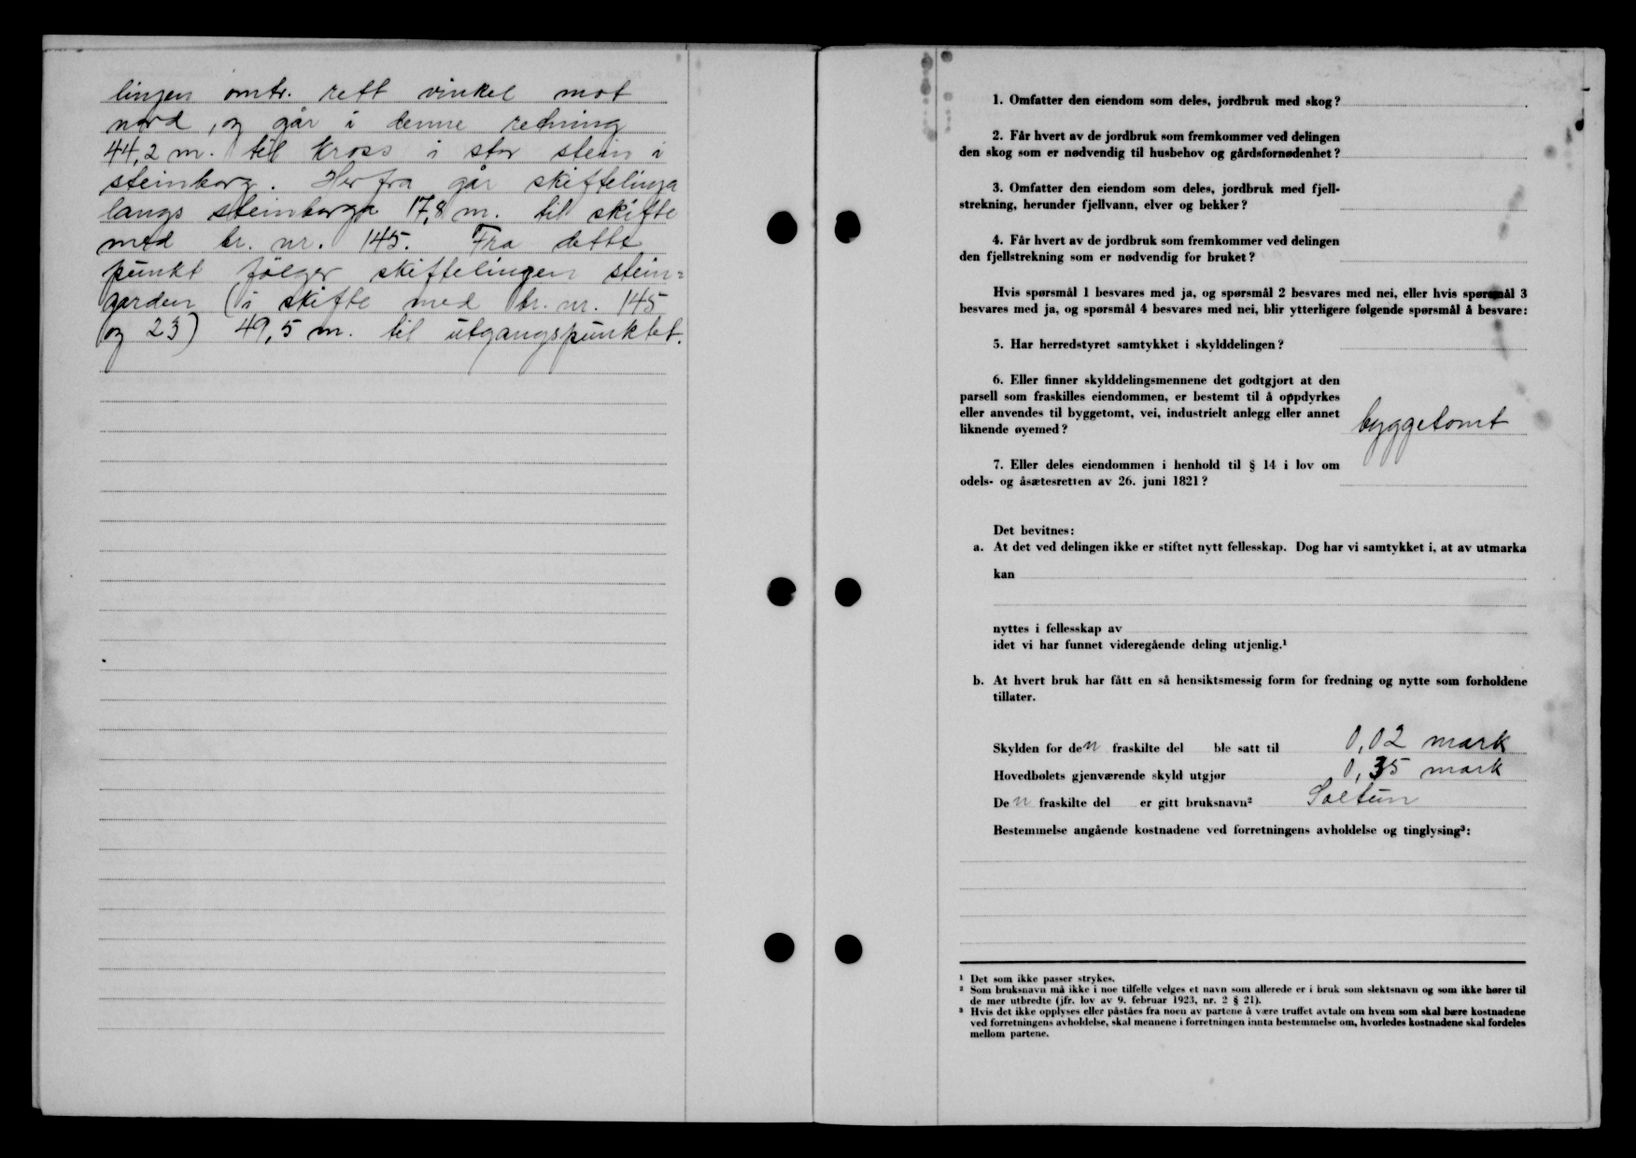 linjen omtr. rett vinkel mot
nord, og går i denne retning
44,2 m. til kross i stor stein i
steinborg. Her fra går skiftelinja
langs steinborga 17,8 m. til skifte
med br. nr. 145. Fra dette
punkt følger skiftelinjen stein=
garden (i skifte med br. nr. 145
og 23) 49,5 m. til utgangspunktet.
1. Omfatter den eiendom som deles, jordbruk med skog?
2. Får hvert av de jordbruk som fremkommer ved delingen
den skog som er nødvendig til husbehov og gårdsfornødenhet?
3. Omfatter den eiendom som deles, jordbruk med fjell-
strekning, herunder fjellvann, elver og bekker?
4. Får hvert av de jordbruk som fremkommer ved delingen
den fjellstrekning som er nødvendig for bruket?
Hvis spørsmål 1 besvares med ja, og spørsmål 2 besvares med nei, eller hvis spørsmål 3
besvares med ja, og spørsmål 4 besvares med nei, blir ytterligere følgende spørsmål å besvare:
5. Har herredstyret samtykket i skylddelingen?
6. Eller finner skylddelingsmennene det godtgjort at den
parsell som fraskilles eiendommen, er bestemt til å oppdyrkes
eller anvendes til byggetomt, vei, industrielt anlegg eller annet
liknende øyemed? byggetomt
7. Eller deles eiendommen i henhold til § 14 i lov om
odels- og åsætesretten av 26. juni 1821?
Det bevitnes:
a. At det ved delingen ikke er stiftet nytt fellesskap. Dog har vi samtykket i, at av utmarka
kan
nyttes i fellesskap av
idet vi har funnet videregående deling utjenlig.¹
b. At hvert bruk har fått en så hensiktsmessig form for fredning og nytte som forholdene
tillater.
Skylden for den fraskilte del ble satt til 0,02 mark
Hovedbølets gjenværende skyld utgjør 0,35 mark
Den fraskilte del er gitt bruksnavn² Soltun
Bestemmelse angående kostnadene ved forretningens avholdelse og tinglysing³:
¹ Det som ikke passer strykes.
² Som bruksnavn må ikke i noe tilfelle velges et navn som allerede er i bruk som slektsnavn og som ikke hører til
de mer utbredte (jfr. lov av 9. februar 1923, nr. 2 § 21).
³ Hvis det ikke opplyses eller påståes fra noen av partene å være truffet avtale om hvem som skal bære kostnadene
ved forretningens avholdelse, skal mennene i forretningen innta bestemmelse om, hvorledes kostnadene skal fordeles
mellom partene.